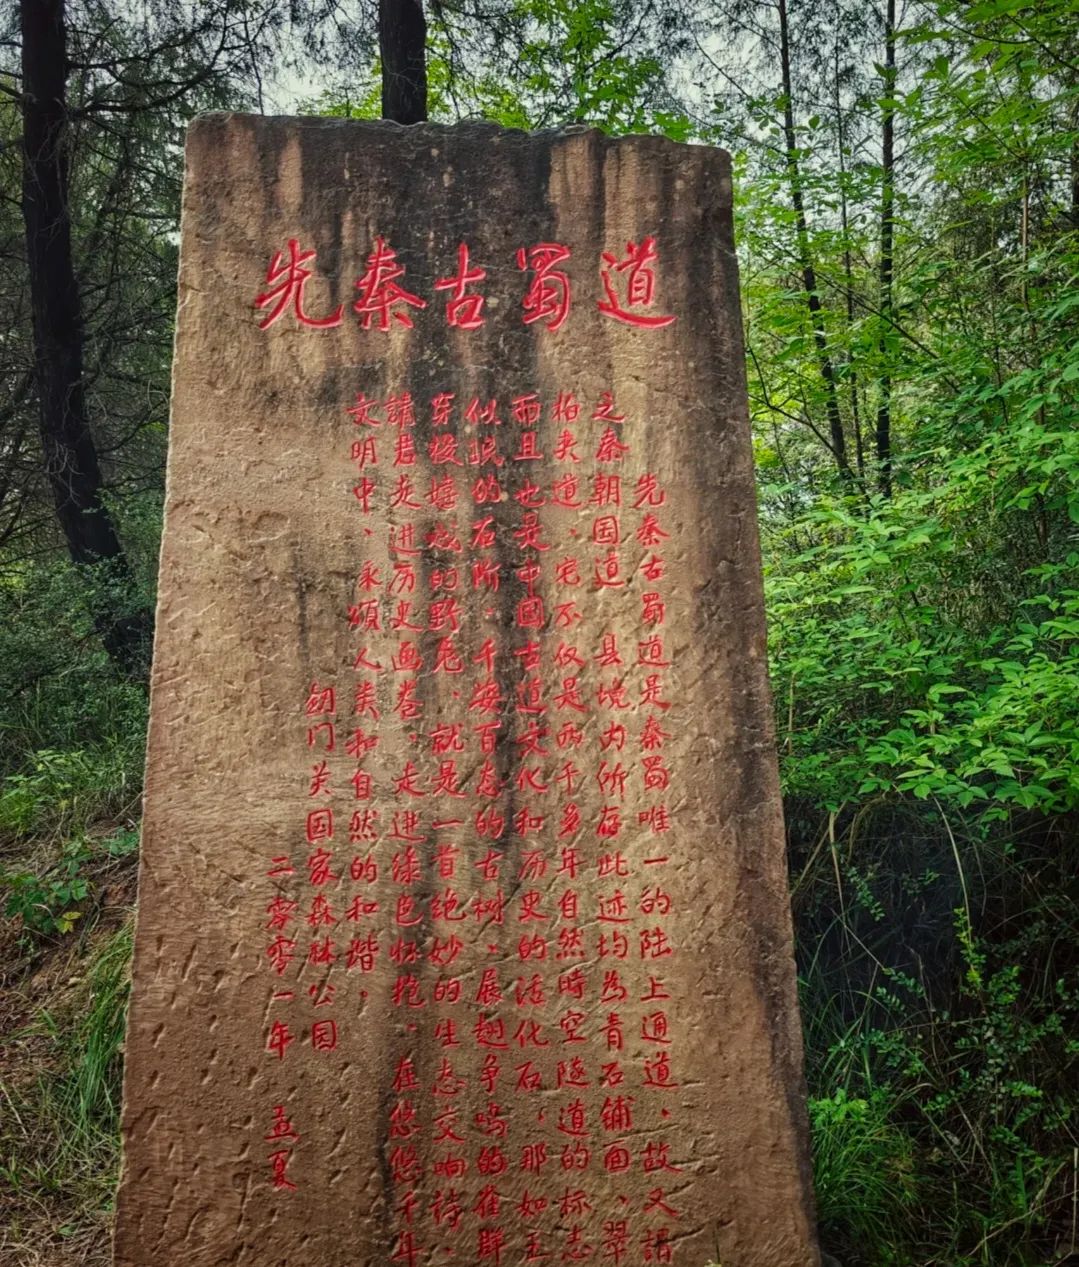 先秦古蜀道
先秦古蜀道是秦蜀唯一的陆上通道、故又謂
之秦朝国道 县境内所存此迹均為青石铺面、翠
柏夹道、它不仅是两千多年自然時空隧道的标志
而且也是中国古道文化和历史的活化石、那如玉
似珉的石阶、千姿百态的古树、展翅争鸣的雀群
穿梭嬉戏的野兔、就是一首绝妙的生态交响诗、
請君走进历史画卷、走进绿色怀抱、在悠悠千年
文明中、永頌人类和自然的和谐。
剑门关国家森林公园
二零零一年 五夏